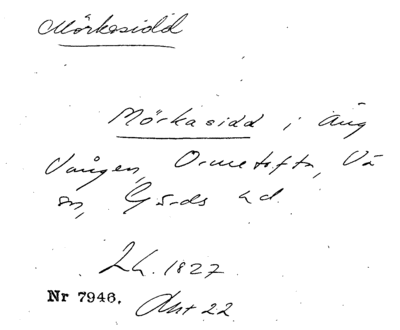 Mörkasidd
Mörkasidd i äng
Vången, Ormetofta, Vä
sn, Gärds hd.
Lh. 1827
Nr 7946. Akt 22